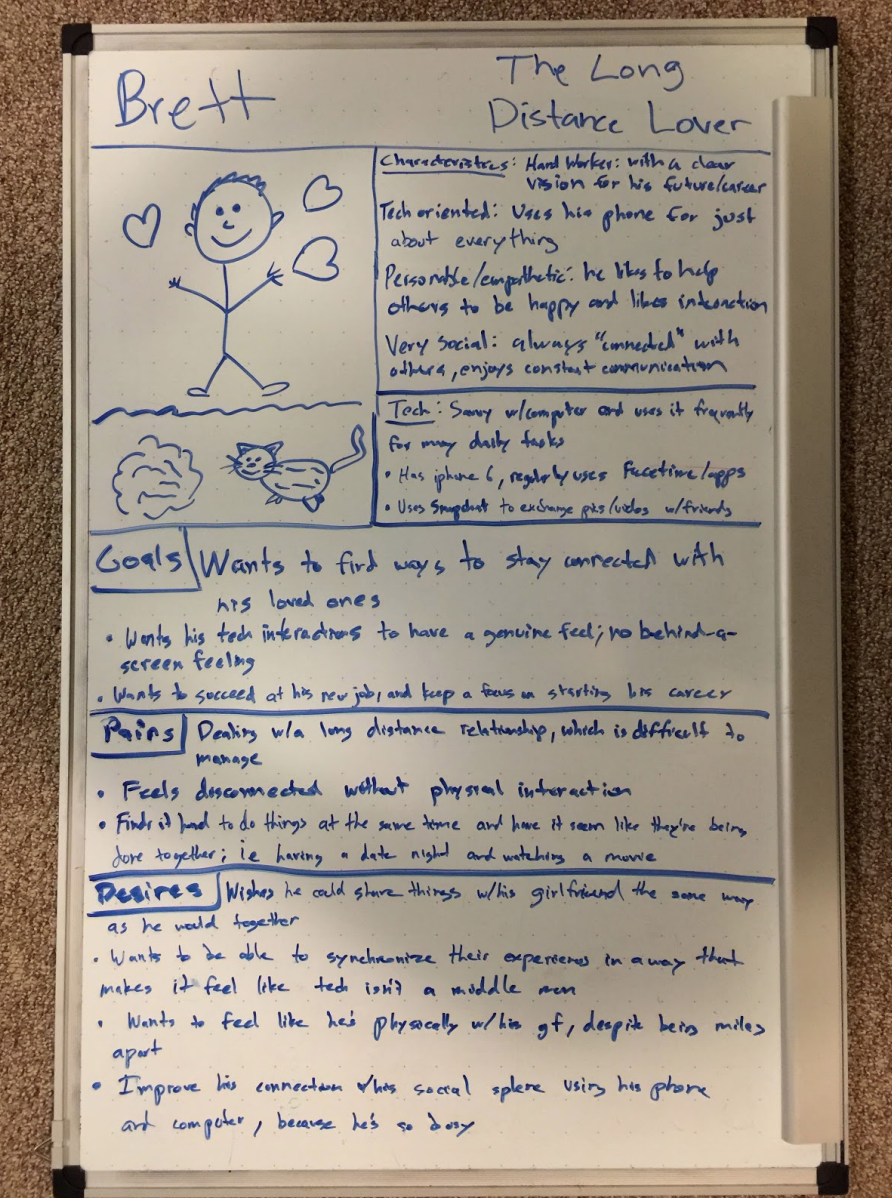 Brett
The Long
Distance Lover
Characteristics: Hard Worker: with a clear
vision for his future/career
Tech oriented: Uses his phone for just
about everything
Personable/empathetic: he likes to help
others to be happy and likes interaction
Very Social: always "connected" with
others, enjoys constant communication
Tech: Savvy w/computer and uses it frequently
for many daily tasks
• Has iphone 6, regularly uses Facetime/apps
• Uses Snapchat to exchange pics/videos w/friends
Goals Wants to find ways to stay connected with
his loved ones
• Wants his tech interactions to have a genuine feel; no behind-a-
screen feeling
• Wants to succeed at his new job, and keep a focus on starting his career
Pains Dealing w/a long distance relationship, which is difficult to
manage
• Feels disconnected without physical interaction
• Finds it hard to do things at the same time and have it seem like they're being
done together; ie having a date night and watching a movie
Desires Wishes he could share things w/his girlfriend the same way
as he would together
• Wants to be able to synchronize their experiences in a way that
makes it feel like tech isn't a middle man
• Wants to feel like he's physically w/his gf, despite being miles
apart
• Improve his connection w/his social sphere using his phone
and computer, because he's so busy